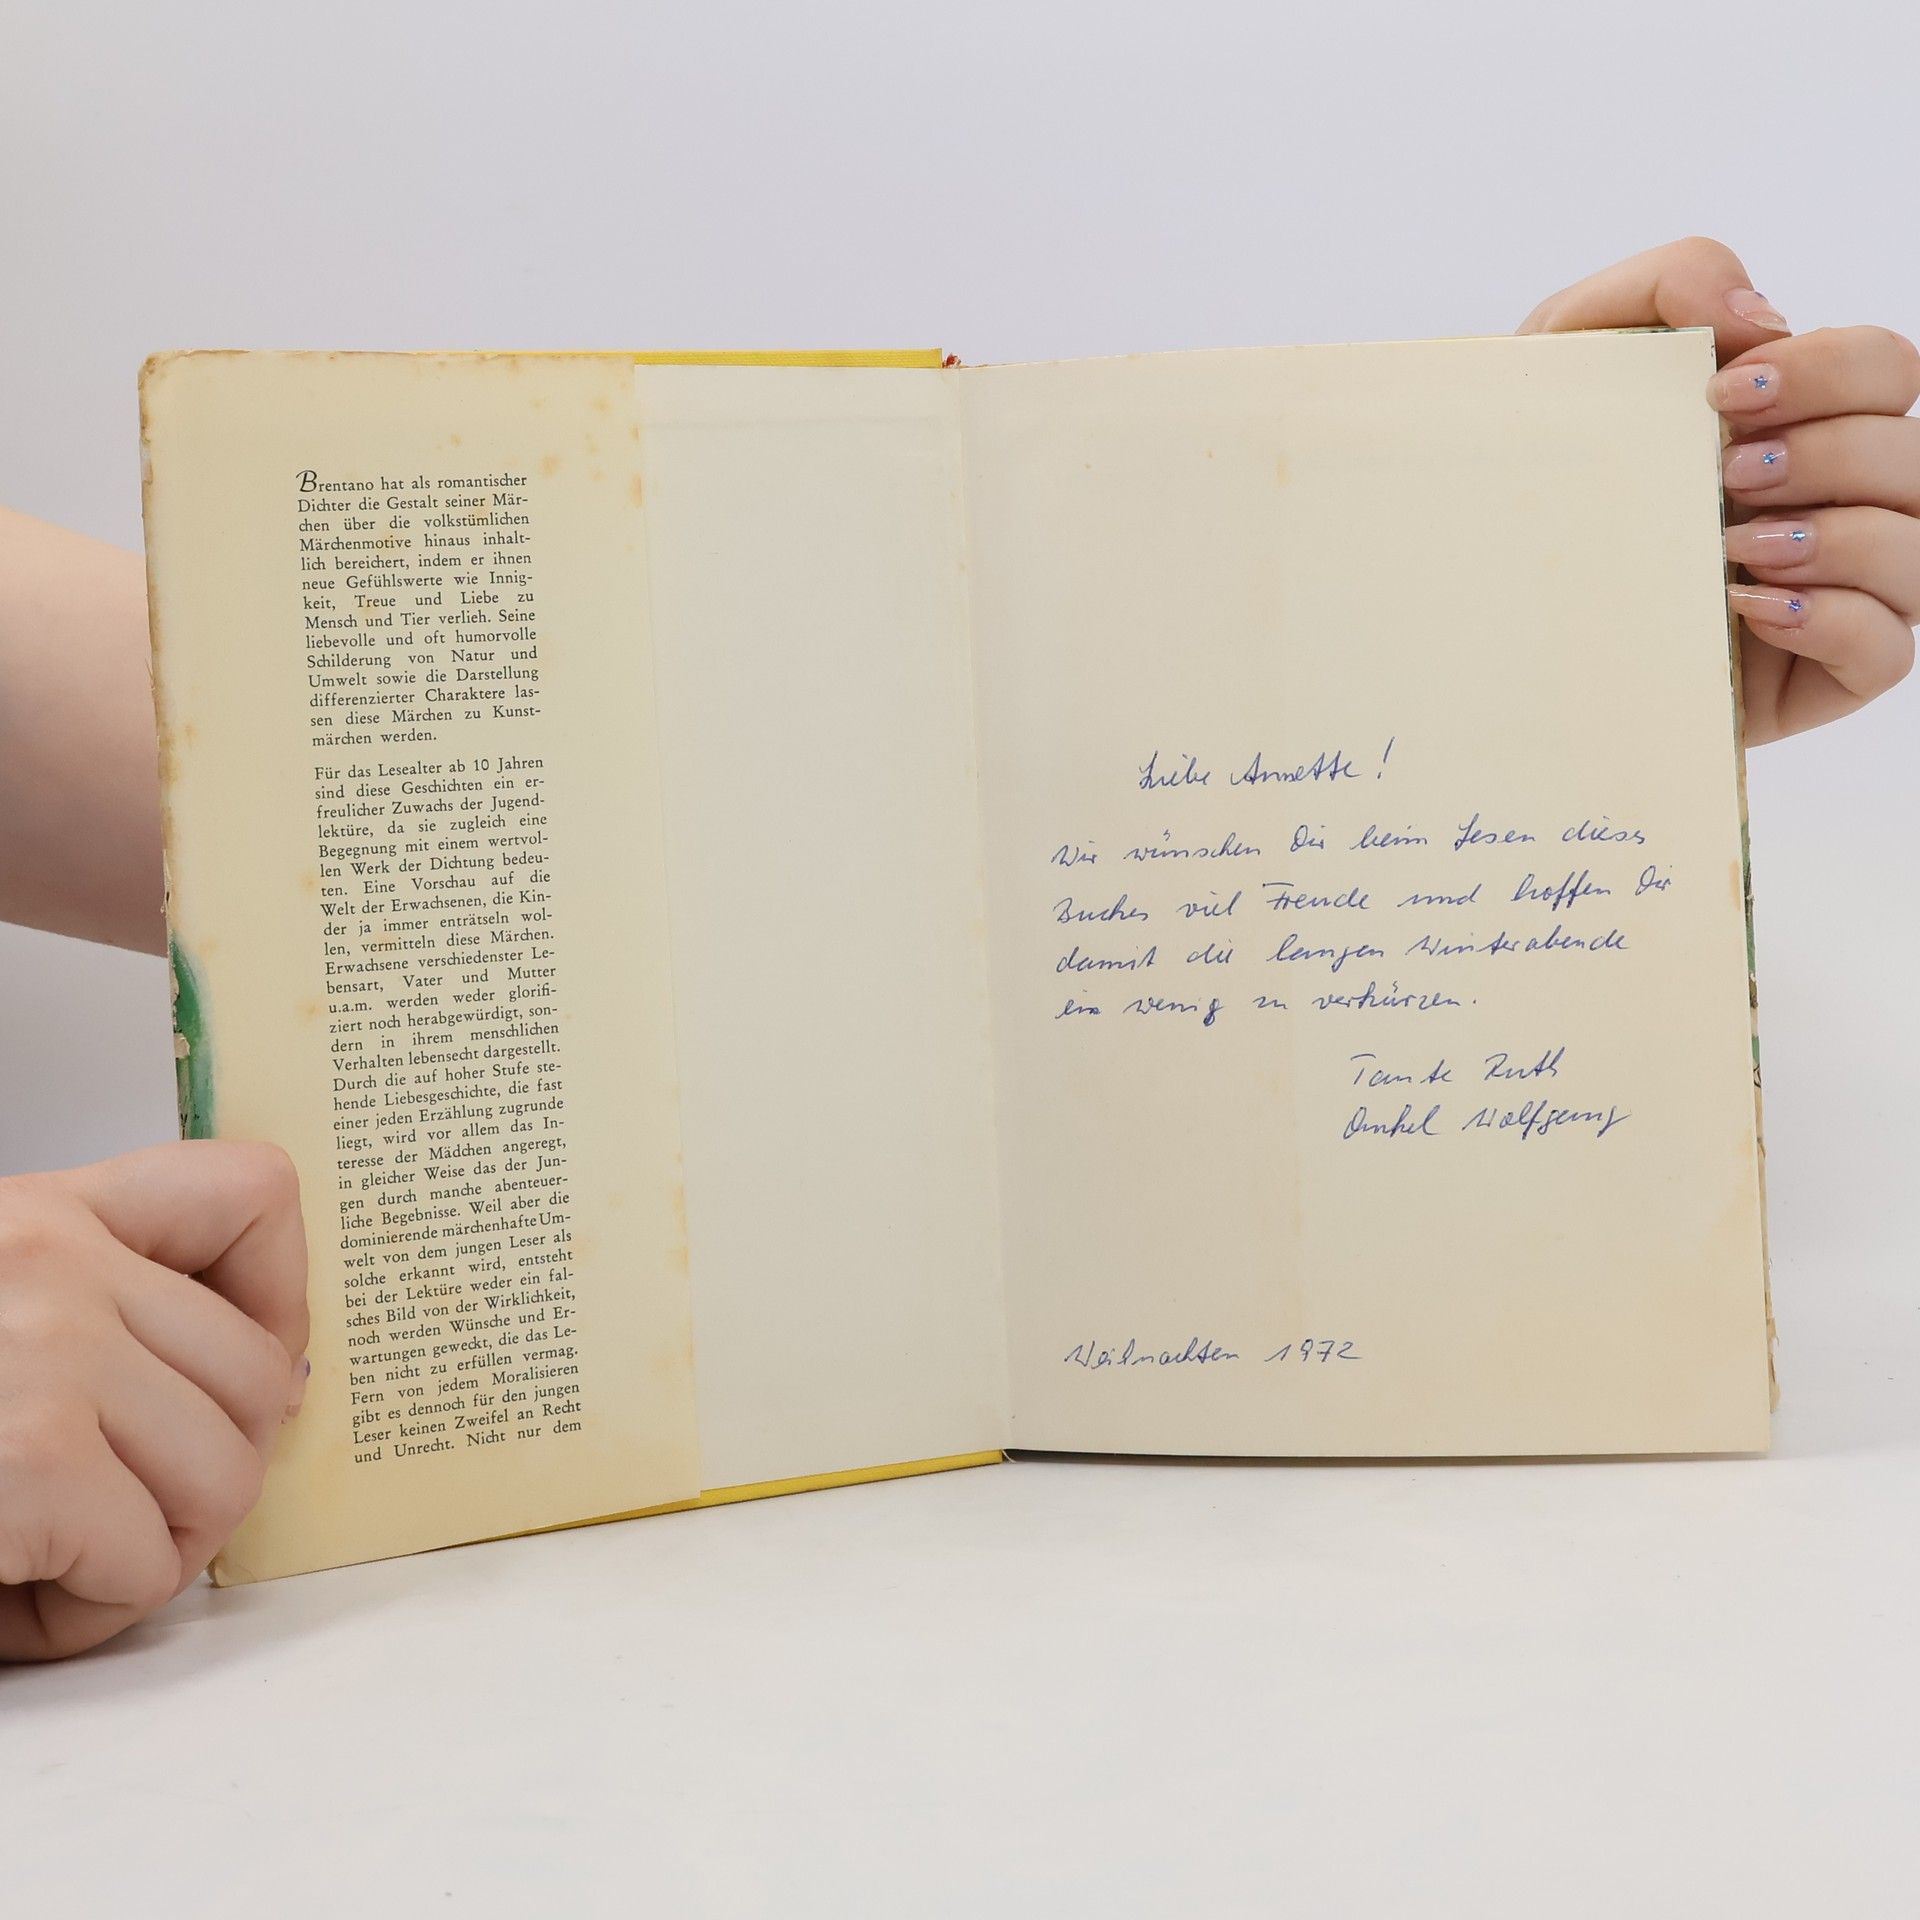 Brentano hat als romantischer
Dichter die Gestalt seiner Mär-
chen über die volkstümlichen
Märchenmotive hinaus inhalt-
lich bereichert, indem er ihnen
neue Gefühlswerte wie Innig-
keit, Treue und Liebe zu
Mensch und Tier verlieh. Seine
liebevolle und oft humorvolle
Schilderung von Natur und
Umwelt sowie die Darstellung
differenzierter Charaktere las-
sen diese Märchen zu Kunst-
märchen werden.
Für das Lesealter ab 10 Jahren
sind diese Geschichten ein er-
freulicher Zuwachs der Jugend-
lektüre, da sie zugleich eine
Begegnung mit einem wertvol-
len Werk der Dichtung bedeu-
ten. Eine Vorschau auf die
Welt der Erwachsenen, die Kin-
der ja immer enträtseln wol-
len, vermitteln diese Märchen.
Erwachsene verschiedenster Le-
bensart, Vater und Mutter
u.a.m. werden weder glorifi-
ziert noch herabgewürdigt, son-
dern in ihrem menschlichen
Verhalten lebensecht dargestellt.
Durch die auf hoher Stufe ste-
hende Liebesgeschichte, die fast
einer jeden Erzählung zugrunde
liegt, wird vor allem das In-
teresse der Mädchen angeregt,
in gleicher Weise das der Jun-
gen durch manche abenteuer-
liche Begebnisse. Weil aber die
dominierende märchenhafte Um-
welt von dem jungen Leser als
solche erkannt wird, entsteht
bei der Lektüre weder ein fal-
sches Bild von der Wirklichkeit,
noch werden Wünsche und Er-
wartungen geweckt, die das Le-
ben nicht zu erfüllen vermag.
Fern von jedem Moralisieren
gibt es dennoch für den jungen
Leser keinen Zweifel an Recht
und Unrecht. Nicht nur dem
Liebe Annette!
Wir wünschen Dir beim Lesen dieses
Buches viel Freude und hoffen Dir
damit die langen Winterabende
ein wenig zu verkürzen.
Tante Ruth
Onkel Wolfgang
Weihnachten 1972